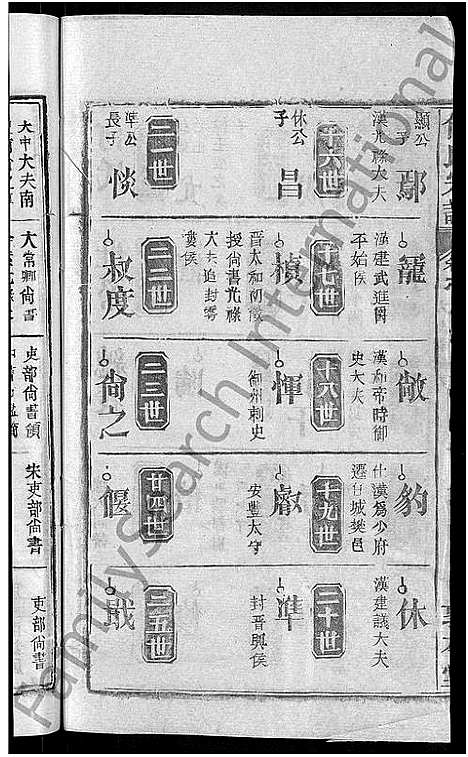 顯公
子
鄢
漢光祿大夫
十六世
休公
子
昌
二一世
準公
長子
惔
寵
漢建武進爵
平始侯
十七世
楨
晉太和初徵
授尚書光祿
大夫追封
侯
二二世
叔度
敞
漢和帝時御
史大夫
十八世
惲
御州刺史
二三世
尚之
豹
仕漢為少府
遷 城樊邑
十九世
叡
安豐太守
廿四世
偃
休
漢建議大夫
二十世
準
封晉興侯
二五世
戢
大中大夫南
大常卿尚書
吏部尚書領
宋吏部尚書
吏部尚書
FamilySearch International